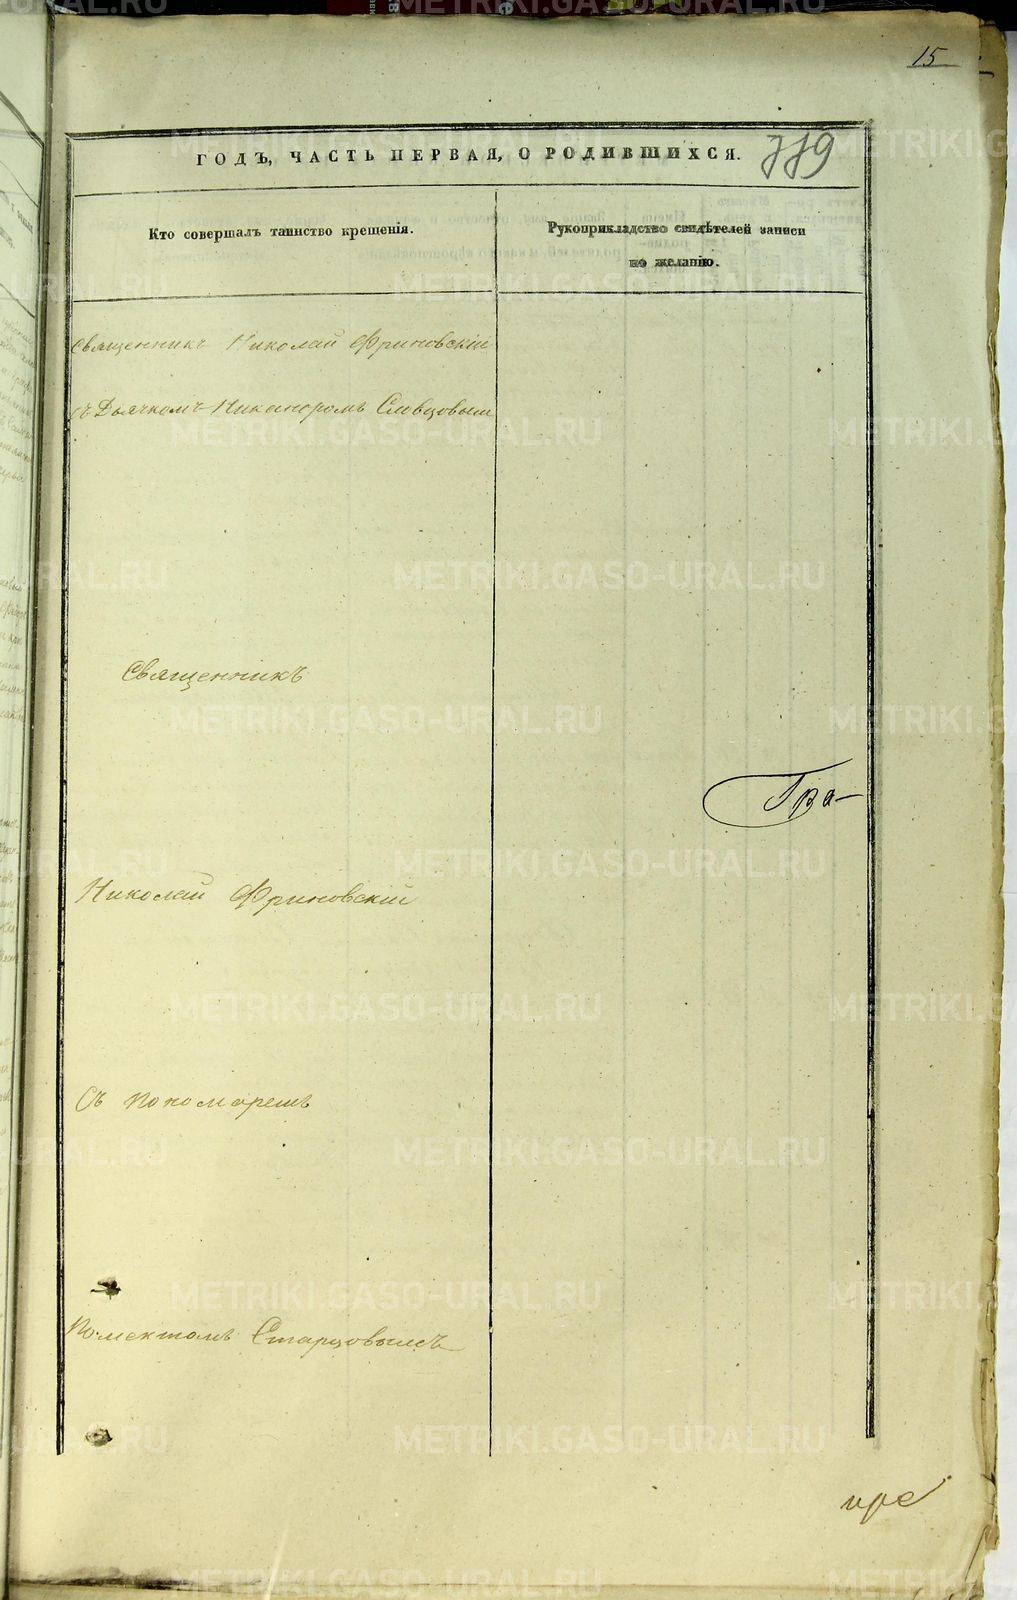 15
ГОДЪ, ЧАСТЬ ПЕРВАЯ, О РОДИВШИХСЯ.
779
Кто совершалъ таинство крещенія.
Рукоприкладство свидѣтелей записи
по желанію.
Священникъ Николай Фриновскій
съ Дьячкомъ Никаноромъ Словцовым
Священникъ
Гра-
Николай Фриновскій
Съ Пономаремъ
Старцовымъ
METRIKI.GASO-URAL.RU